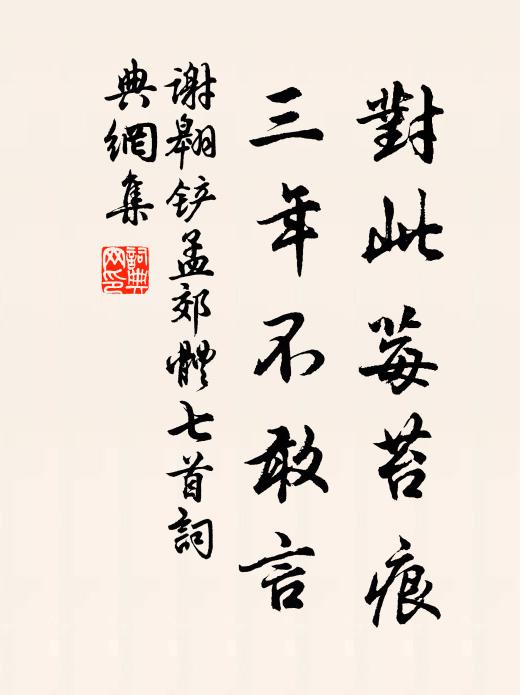 對此莓苔痕
三年不敢言
謝翱铲孟郊體七首詞
典網集
詞典網印